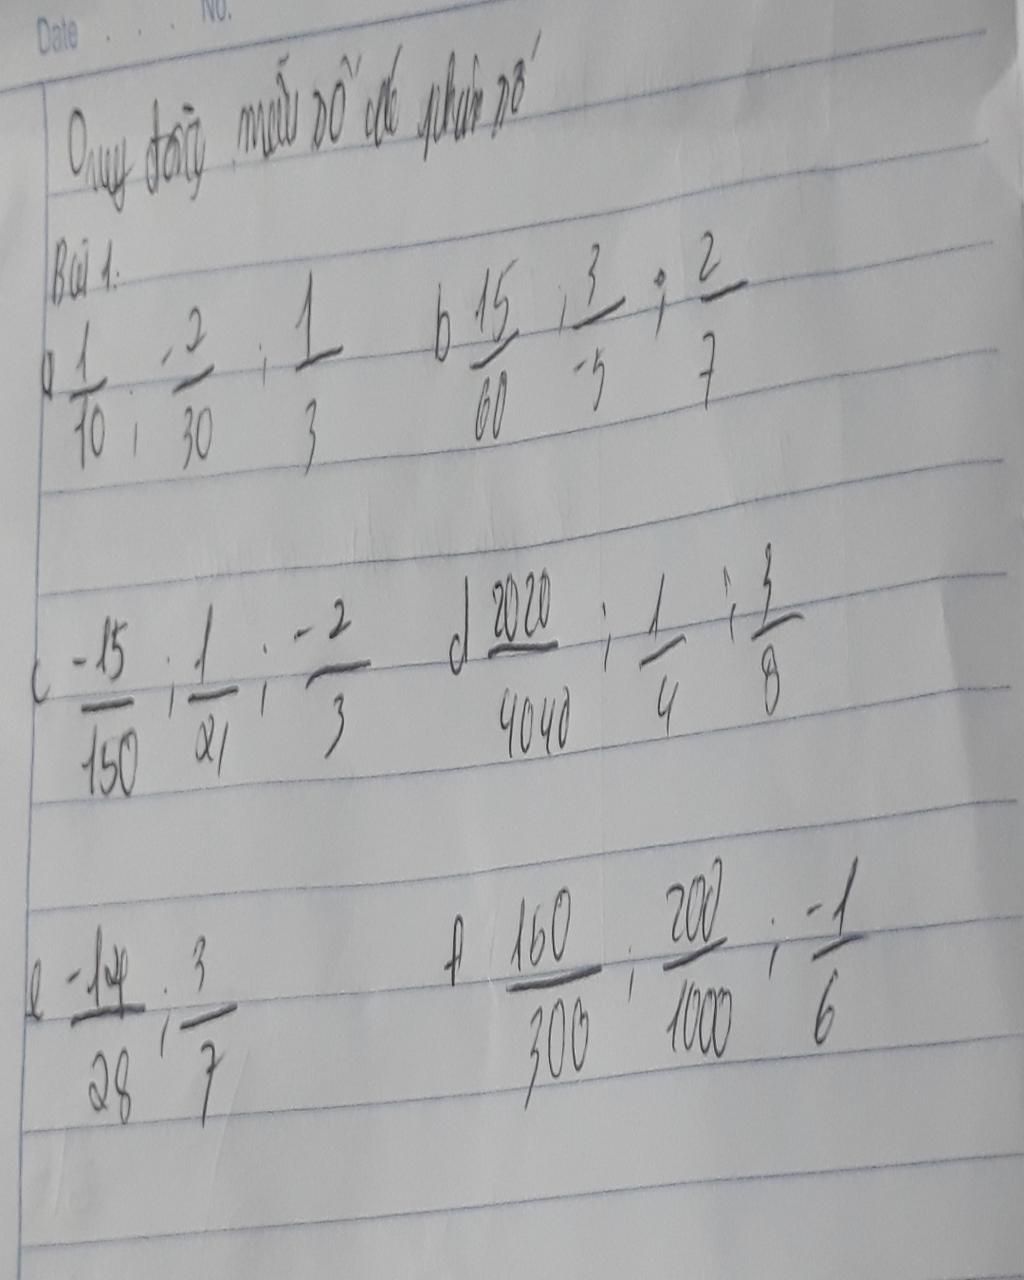 Date . . . . No.
Quy đồng mẫu số các phân số
Bài 1:
a 1/10 ; -2/30 ; 1/3 b 15/60 ; 3/-5 ; 2/7
c -15/150 ; 1/21 ; -2/3 d 2020/4040 ; 1/4 ; 3/8
e -14/28 ; 3/7 f 160/300 ; 200/1000 ; -1/6